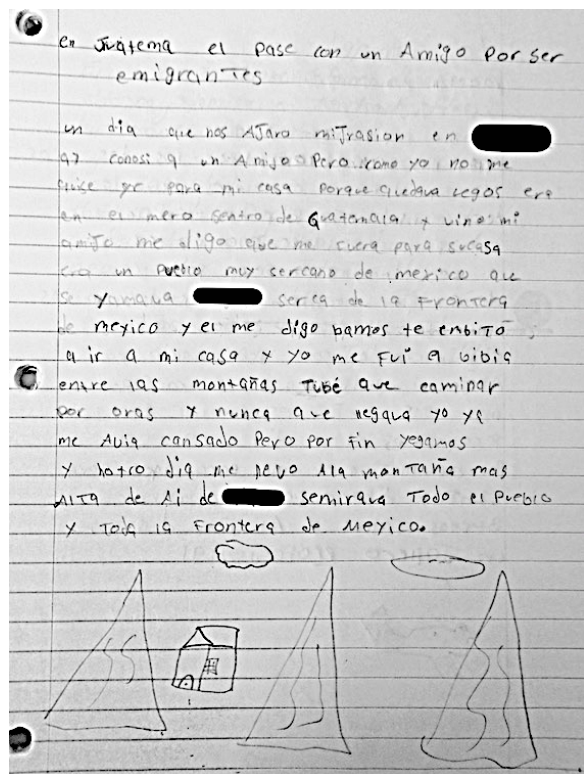 en Juatema el pase con un Amigo por ser
emigrantes
un dia que nos AJaro miJrasion en
a7 conosi a un AmiJo Pero como yo no me
quise yr para mi casa porque quedava legos era
en el mero sentro de Guatemala y vino mi
amiJo me digo que me fuera para sucasa
era un pueblo muy sercano de mexico que
se yamava serca de la Frontera
de mexico y el me digo bamos te enbito
a ir a mi casa y yo me Fui a bibia
entre las montañas Tubé que caminar
por oras y nunca que llegava yo ya
me Avia cansado Pero por fin yegamos
y hotro dia me llevo Ala montaña mas
AlTa de Ai de semirava Todo el Pueblo
y Toda la Frontera de Mexico.